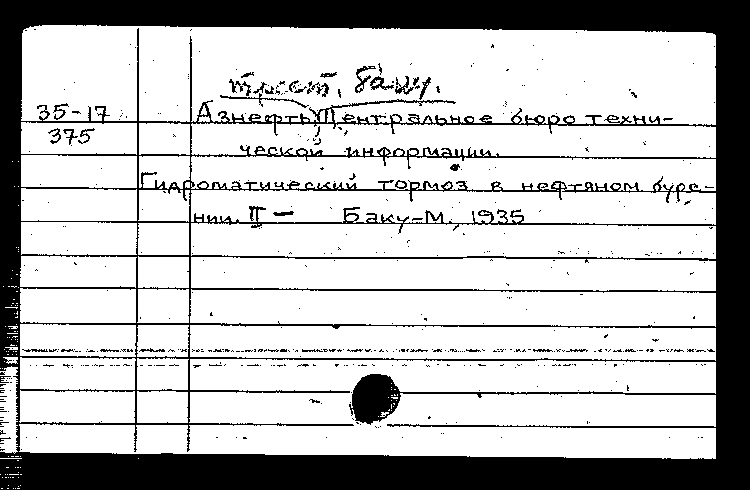 трест, Баку.
35-17 Азнефть, Центральное бюро техни-
375
ческой информации.
Гидроматический тормоз в нефтяном буре-
нии. II — Баку-М., 1935